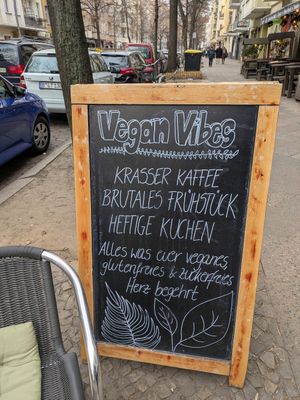 Vegan Vibes
KRASSER KAFFEE
BRUTALES FRÜHSTÜCK
HEFTIGE KUCHEN
Alles was euer veganes,
glutenfreies & zuckerfreies
Herz begehrt